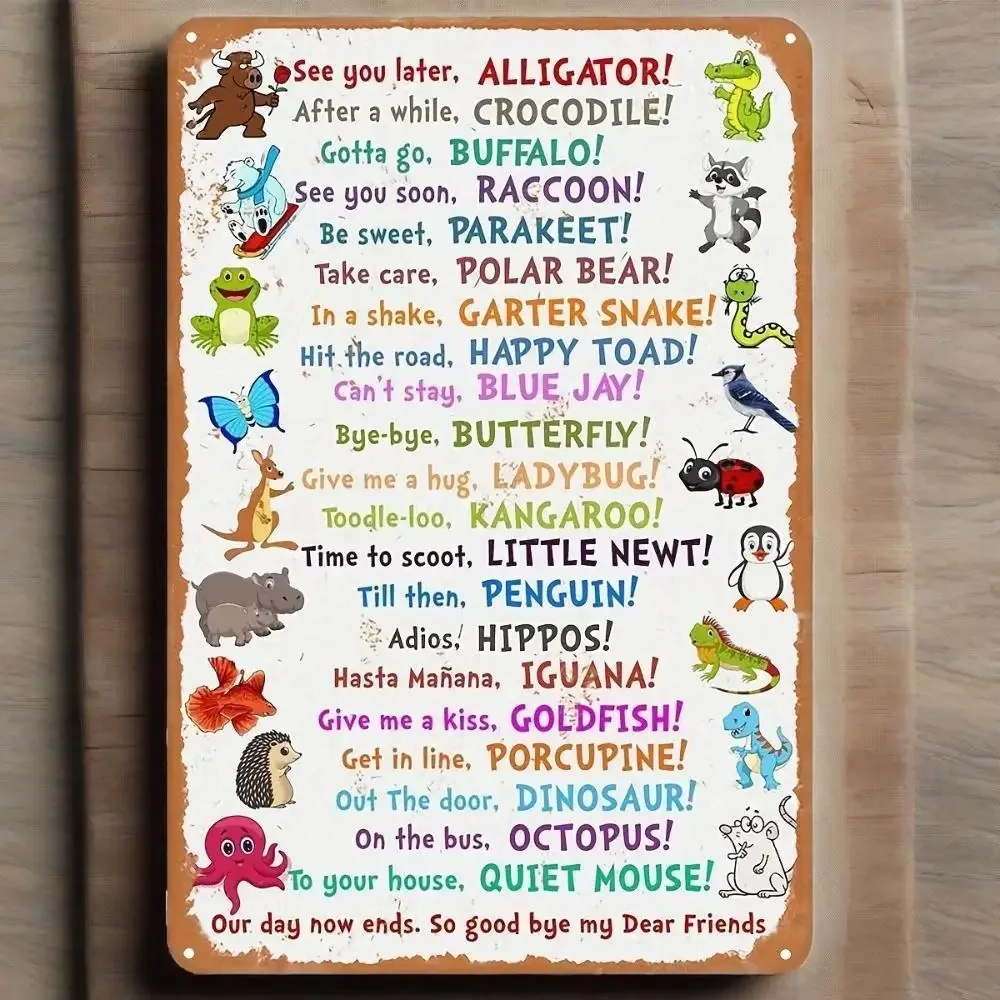 See you later, ALLIGATOR!
After a while, CROCODILE!
Gotta go, BUFFALO!
See you soon, RACCOON!
Be sweet, PARAKEET!
Take care, POLAR BEAR!
In a shake, GARTER SNAKE!
Hit the road, HAPPY TOAD!
Can't stay, BLUE JAY!
Bye-bye, BUTTERFLY!
Give me a hug, LADYBUG!
Toodle-loo, KANGAROO!
Time to scoot, LITTLE NEWT!
Till then, PENGUIN!
Adios, HIPPOS!
Hasta Mañana, IGUANA!
Give me a kiss, GOLDFISH!
Get in line, PORCUPINE!
Out The door, DINOSAUR!
On the bus, OCTOPUS!
To your house, QUIET MOUSE!
Our day now ends. So good bye my Dear Friends